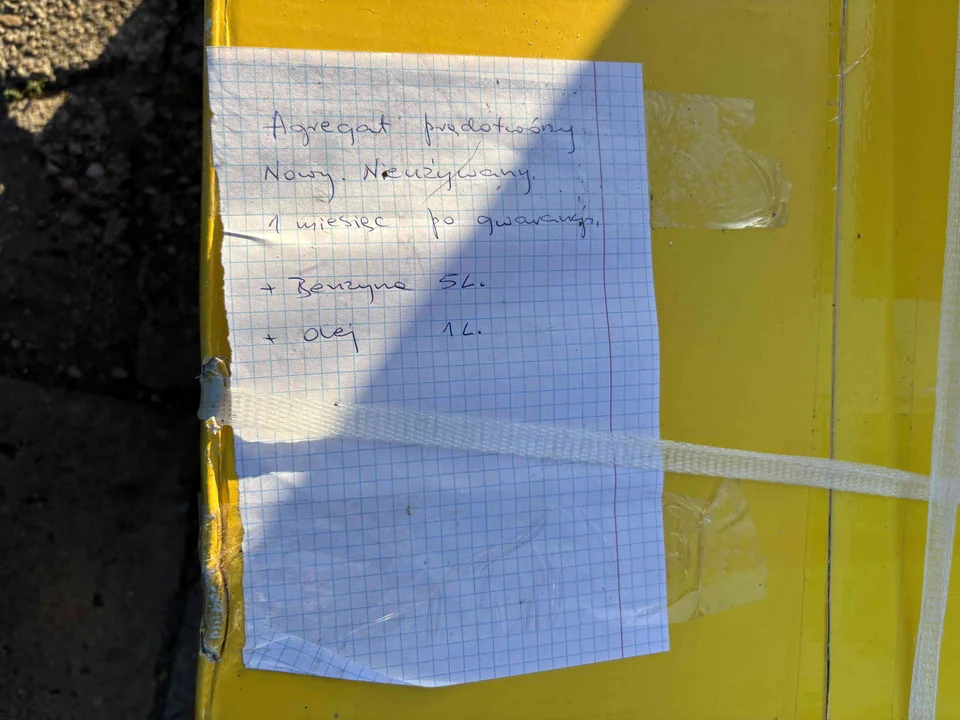 Agregat prądotwórczy.
Nowy. Nieużywany.
1 miesiąc po gwarancji.
+ Benzyna 5L.
+ Olej 1L.